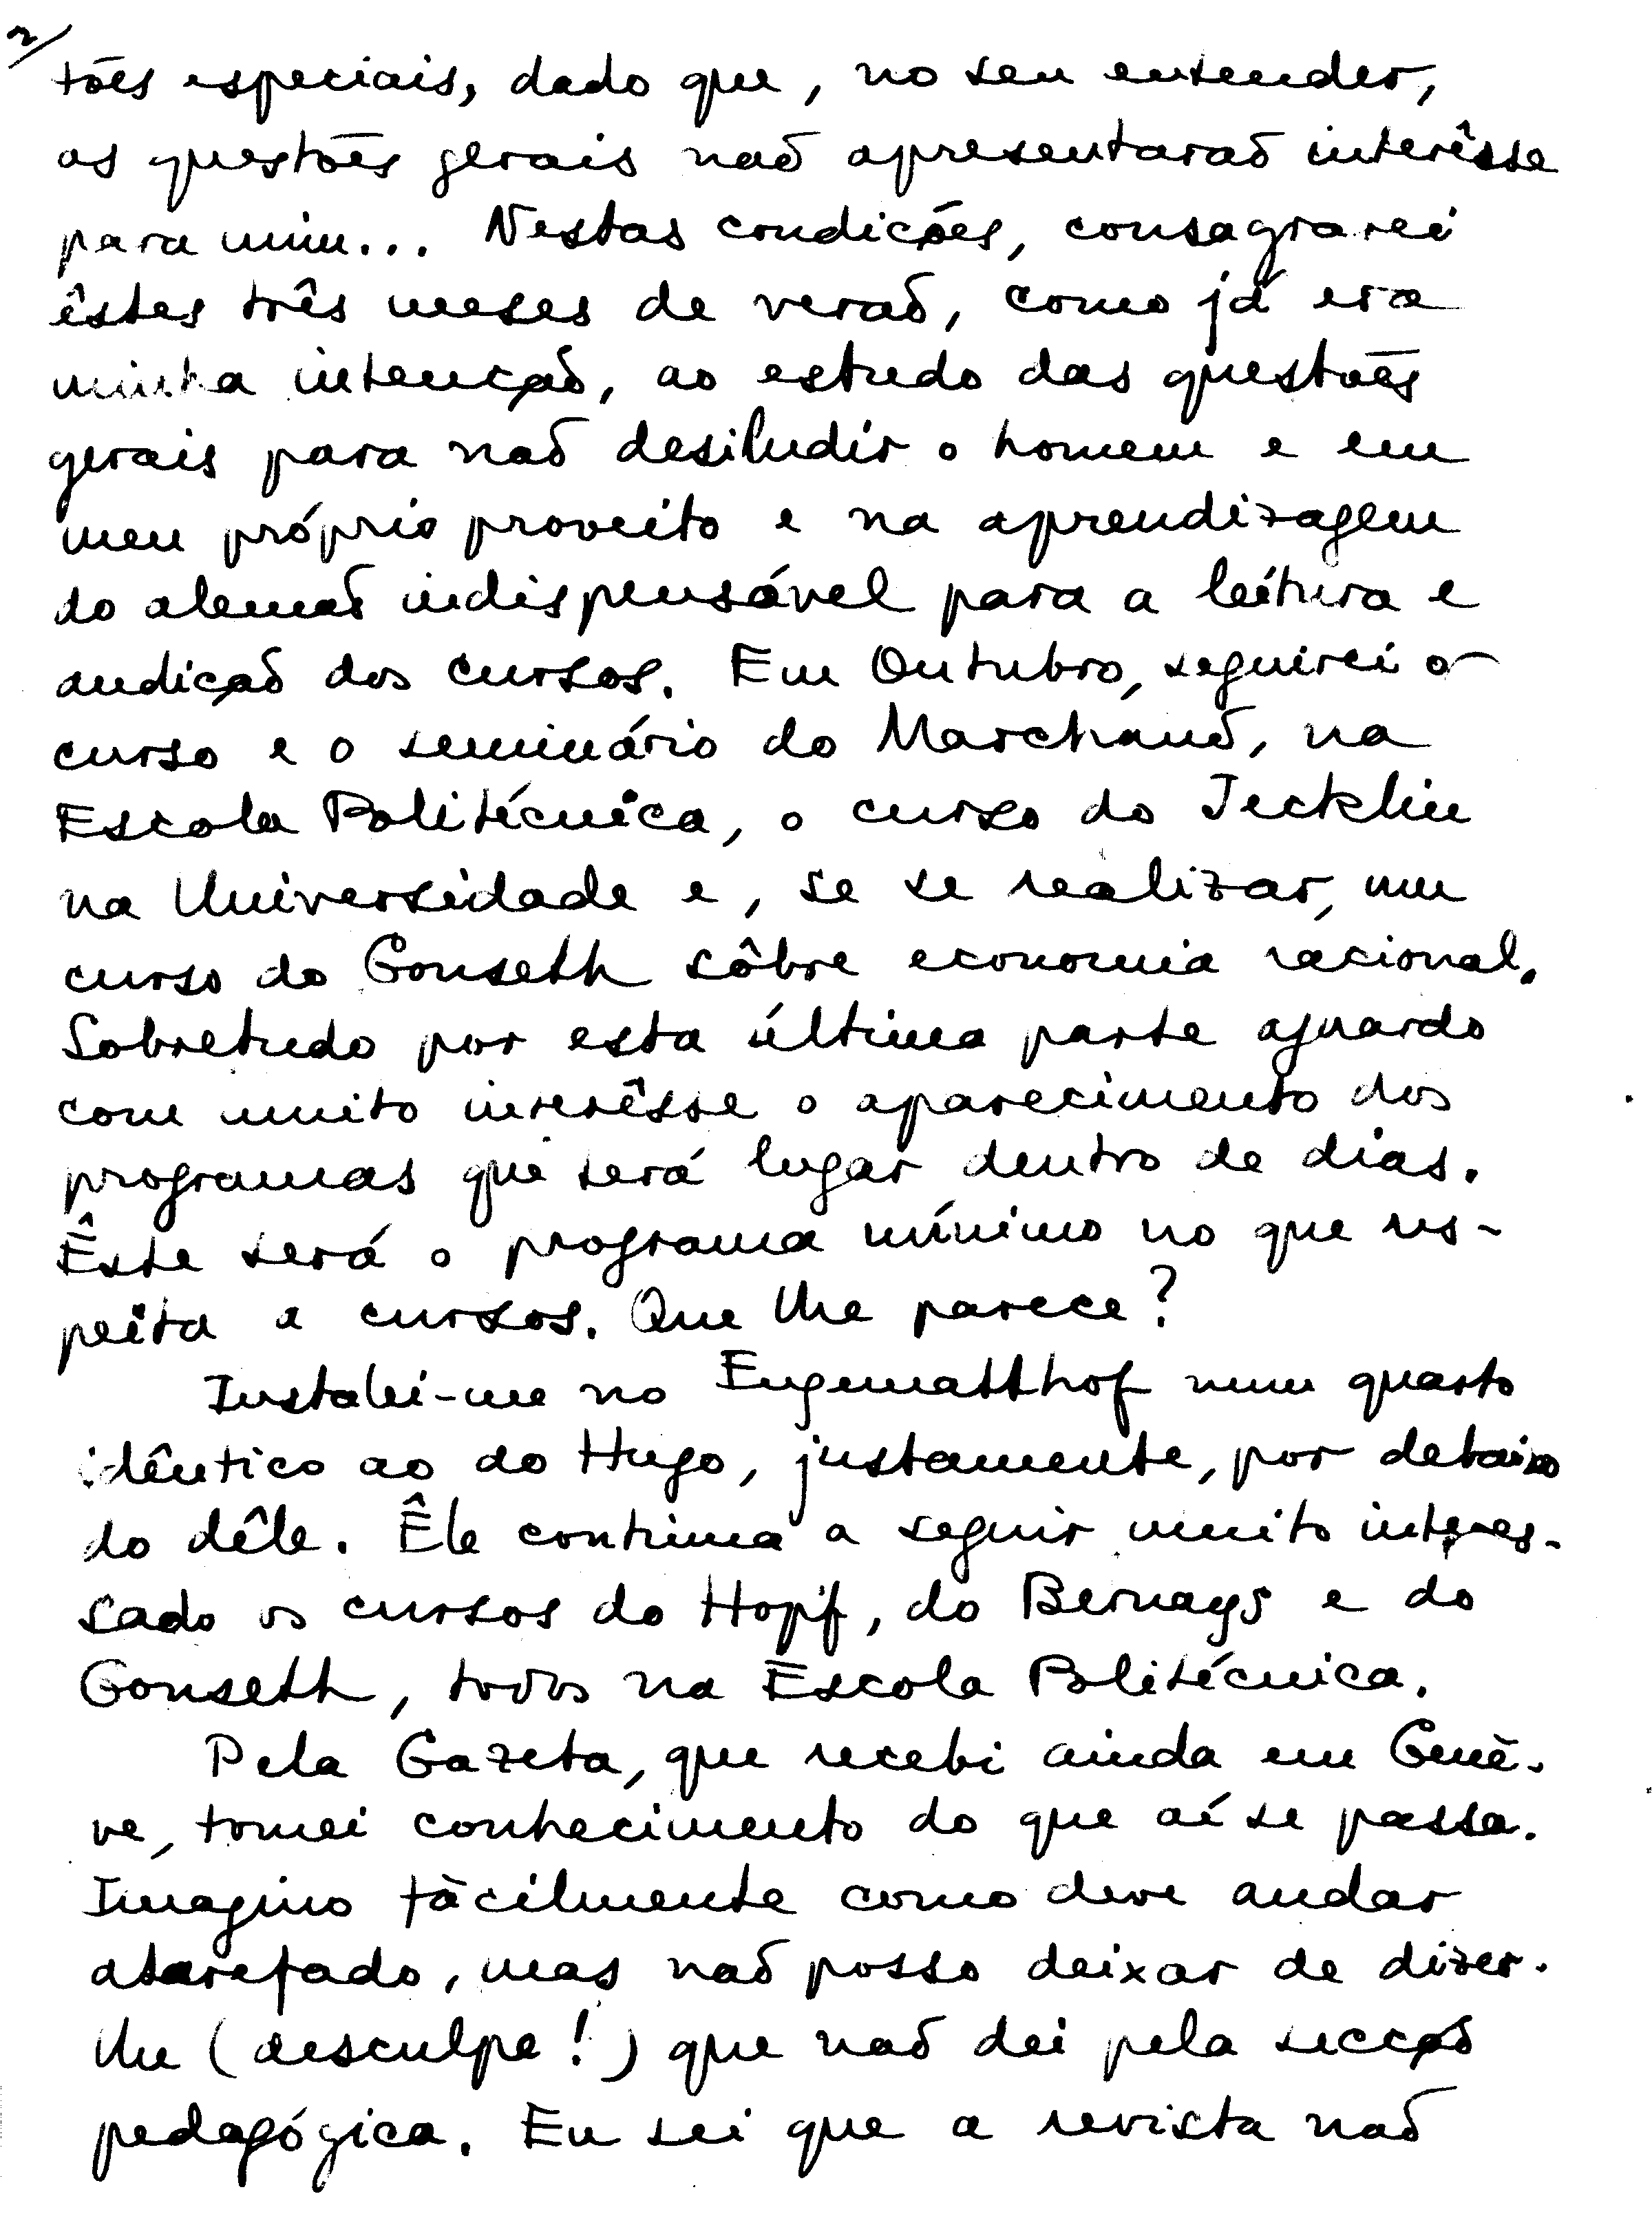 2/
tões especiais, dado que, no seu entender,
as questões gerais não apresentarão interêsse
para mim... Nestas condições, consagrarei
êstes três meses de verão, como já era
minha intenção, ao estudo das questões
gerais para não desiludir o homem e em
meu próprio proveito e na aprendizagem
do alemão indispensável para a leitura e
audição dos cursos. Em Outubro, seguirei o
curso e o seminário do Marchand, na
Escola Politécnica, o curso do Jecklin
na Universidade e, se se realizar, um
curso do Gonseth sôbre economia racional.
Sobretudo por esta última parte aguardo
com muito interêsse o aparecimento dos
programas que terá lugar dentro de dias.
Êste será o programa mínimo no que res-
peita a cursos. Que lhe parece?
Instalei-me no Eugematthof num quarto
idêntico ao do Hugo, justamente, por debaixo
do dêle. Êle continua a seguir muito interes-
sado os cursos do Hopf, do Bernays e do
Gonseth, todos na Escola Politécnica.
Pela Gazeta, que recebi ainda em Genè-
ve, tomei conhecimento do que aí se passa.
Imagino fàcilmente como deve andar
atarefado, mas não posso deixar de dizer-
lhe (desculpe!) que não dei pela secção
pedagógica. Eu sei que a revista não